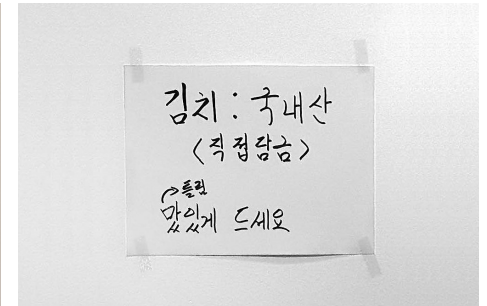 김치 : 국내산
<직접담금>
틀림
맜있게 드세요